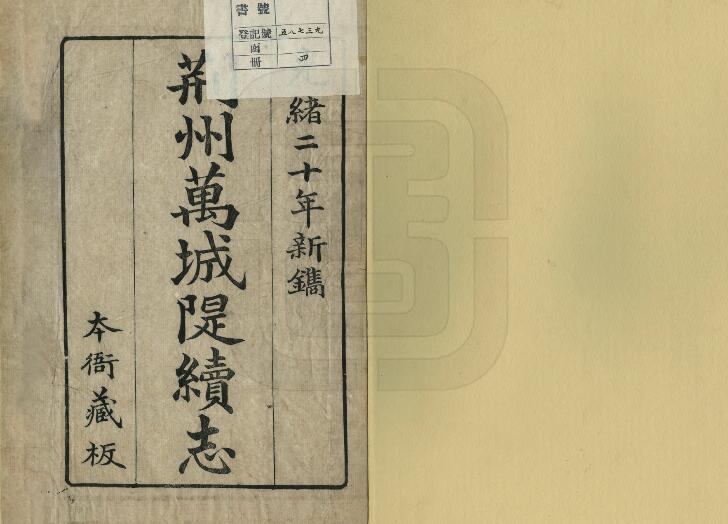 書號
登記號 五八七三九
函
冊 四
光緒二十年新鐫
荆州萬城隄續志
本衙藏板